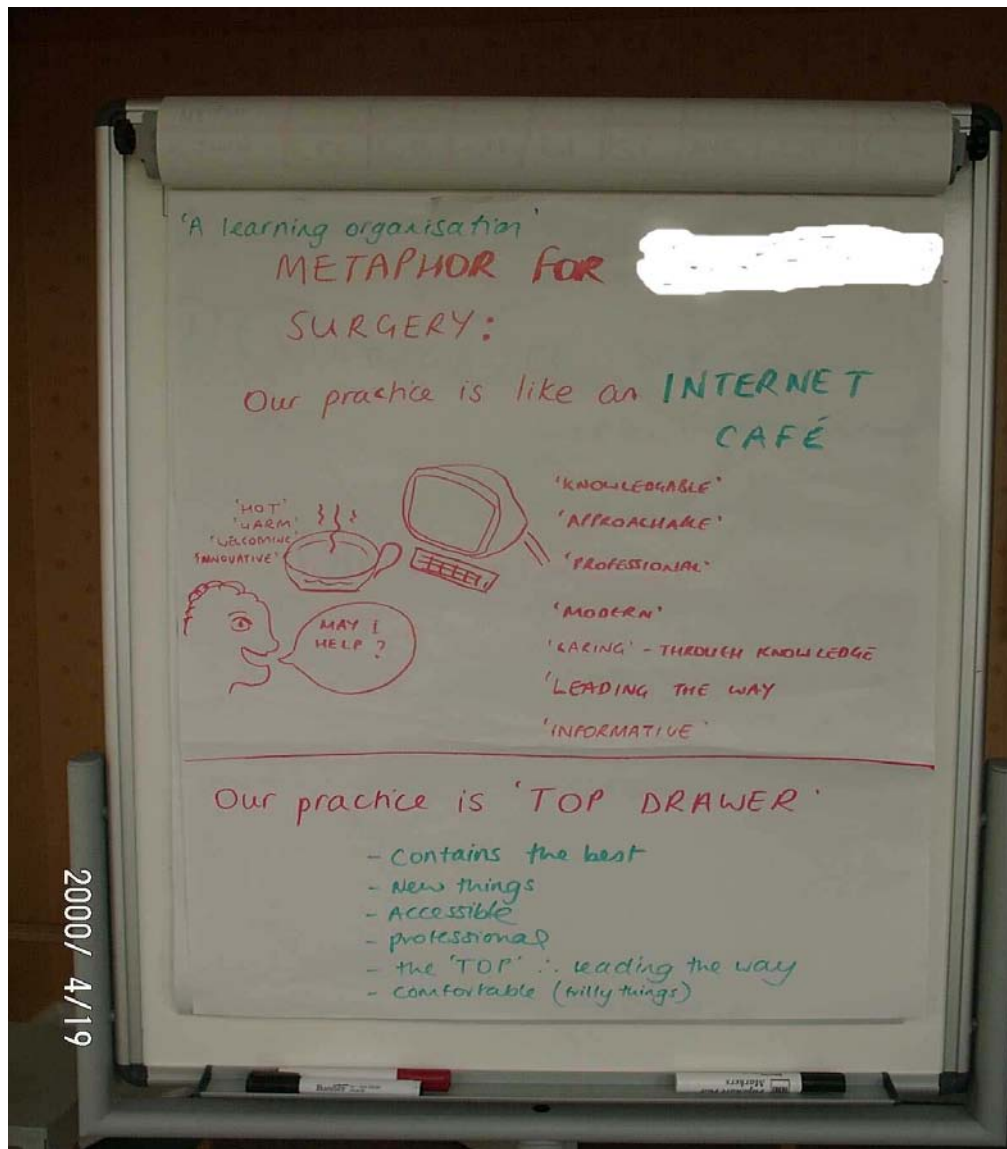 'A learning organisation'
METAPHOR FOR
SURGERY:
Our practice is like an INTERNET
CAFÉ
'HOT'
'WARM'
'WELCOMING'
'INNOVATIVE'
MAY I
HELP ?
'KNOWLEDGABLE'
'APPROACHABLE'
'PROFESSIONAL'
'MODERN'
'CARING' - THROUGH KNOWLEDGE
'LEADING THE WAY
'INFORMATIVE'
Our practice is 'TOP DRAWER'
- Contains the best
- New things
- Accessible
- professional
- the 'TOP' ∴ leading the way
- comfortable (frilly things)
2000/ 4/19
Markers